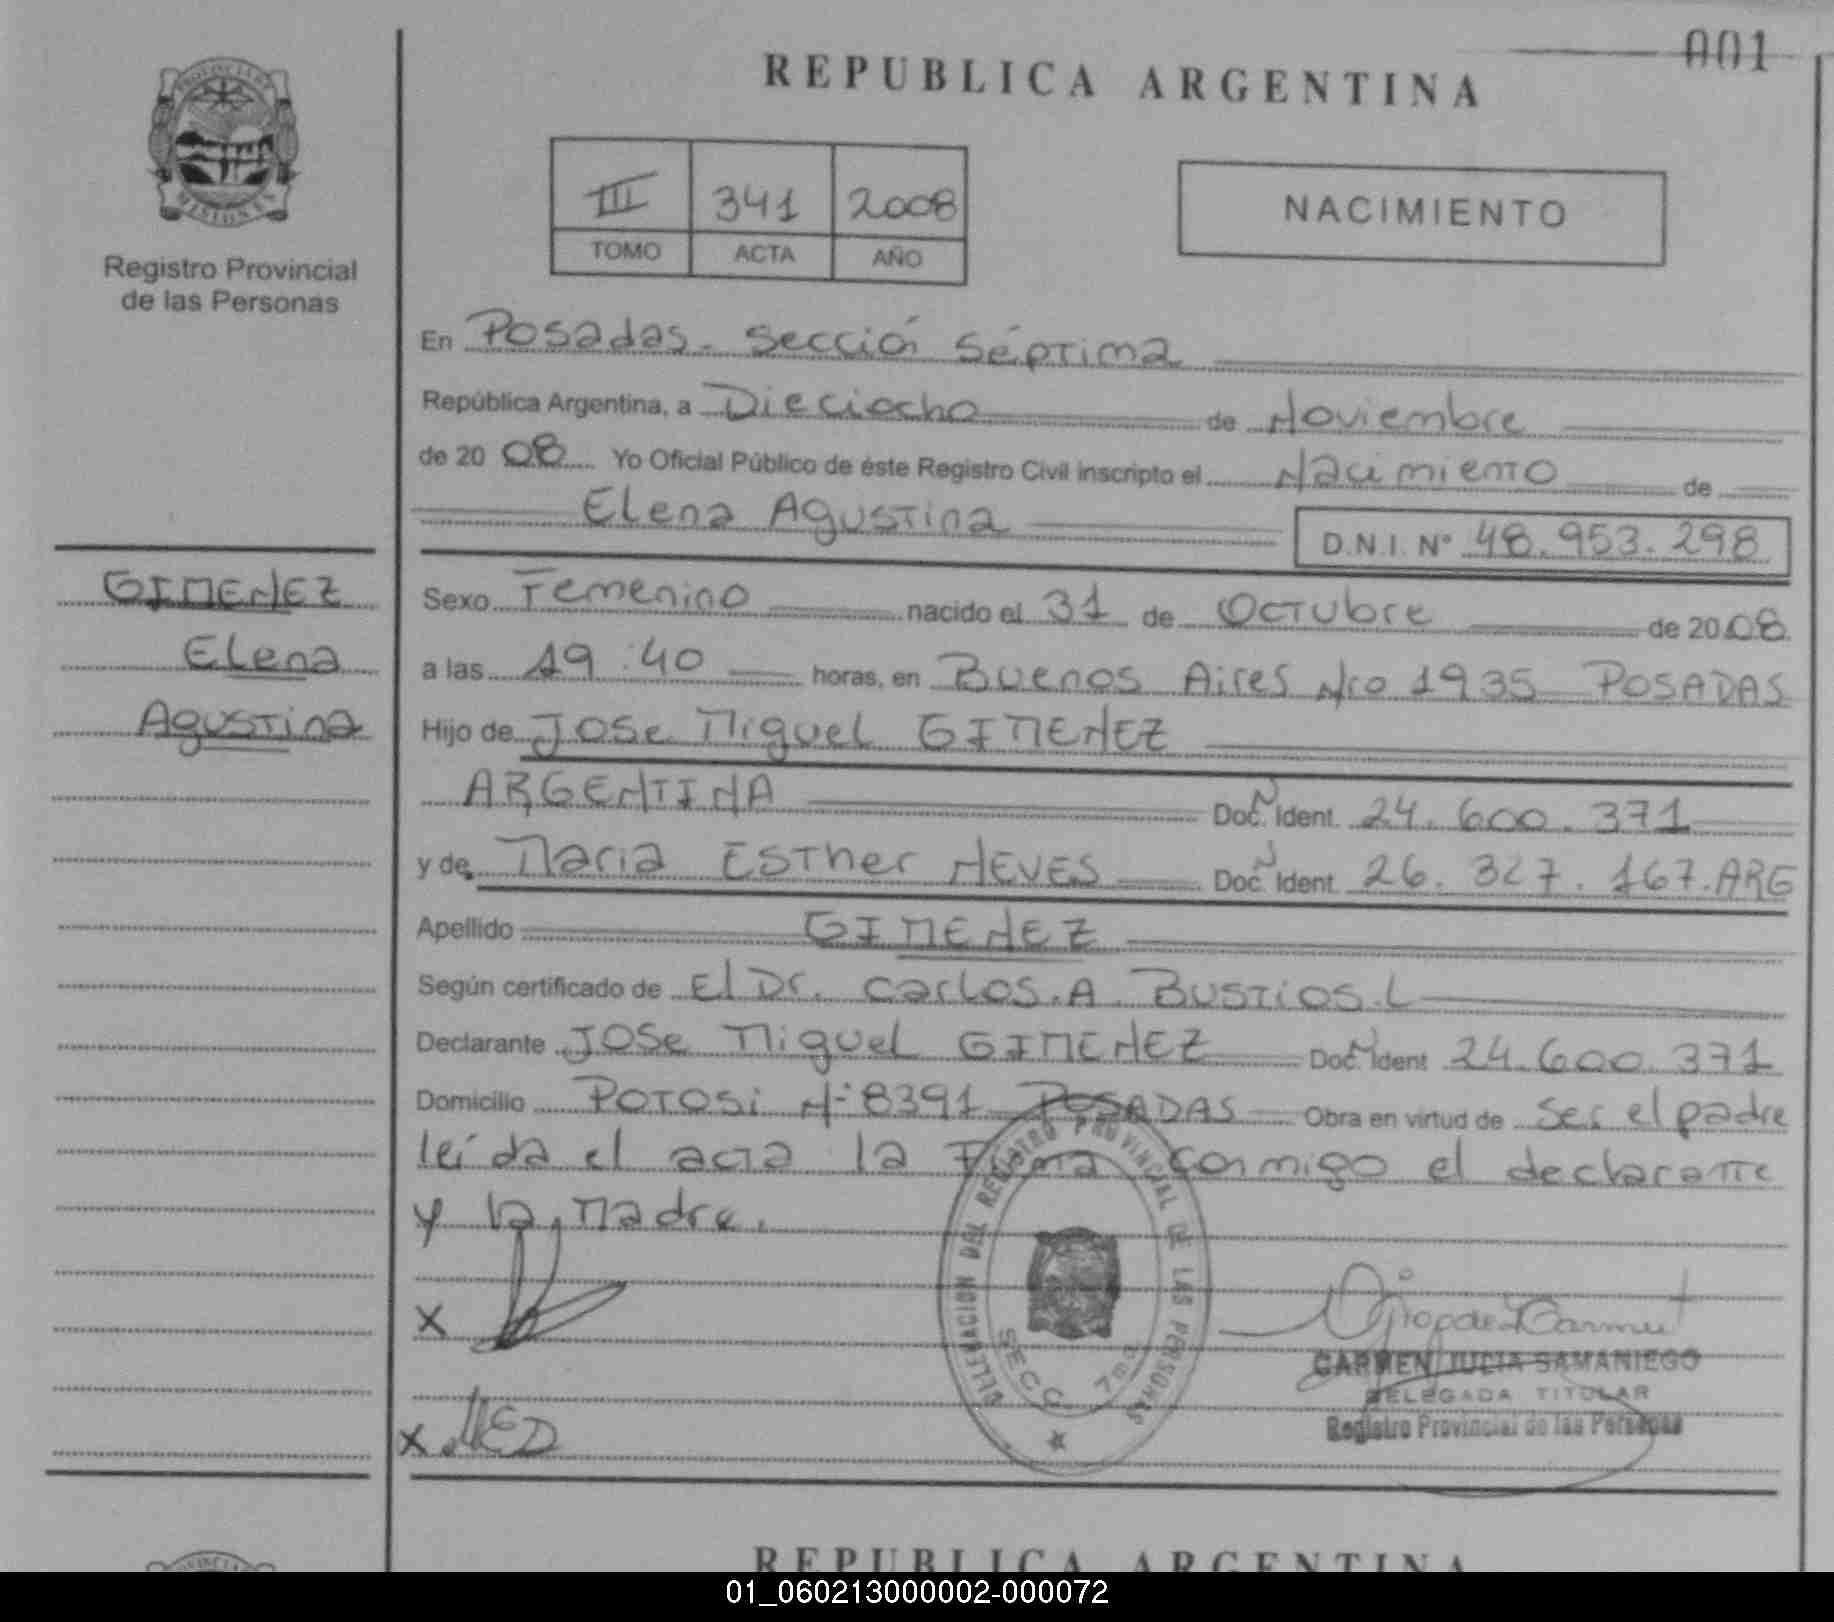 001
REPUBLICA ARGENTINA
PROVINCIA DE
MISIONES
Registro Provincial
de las Personas
III 341 2008
TOMO ACTA AÑO
NACIMIENTO
En Posadas - Sección Séptima
República Argentina, a Dieciocho de Noviembre
de 20 08 Yo Oficial Público de éste Registro Civil inscripto el Nacimiento de
Elena Agustina D.N.I. Nº 48.953.298
GIMENEZ
Elena
Agustina
Sexo Femenino nacido el 31 de Octubre de 2008
a las 19:40 horas, en Buenos Aires Nro 1935 POSADAS
Hijo de Jose Miguel GIMENEZ
ARGENTINA Doc. Ident. 24.600.371
y de Maria Esther NEVES Doc. Ident. 26.327.167.ARG
Apellido GIMENEZ
Según certificado de El Dr. Carlos.A. Bustios.L
Declarante Jose Miguel GIMENEZ Doc. Ident 24.600.371
Domicilio Potosi Nº 8391 POSADAS Obra en virtud de ser el padre
leída el acta la Firma conmigo el declarante
y la Madre.
X
X
DELEGACION DEL REGISTRO PROVINCIAL DE LAS PERSONAS
SECC. 7ma
CARMEN JULIA SAMANIEGO
DELEGADA TITULAR
Registro Provincial de las Personas
REPUBLICA ARGENTINA
01_060213000002-000072